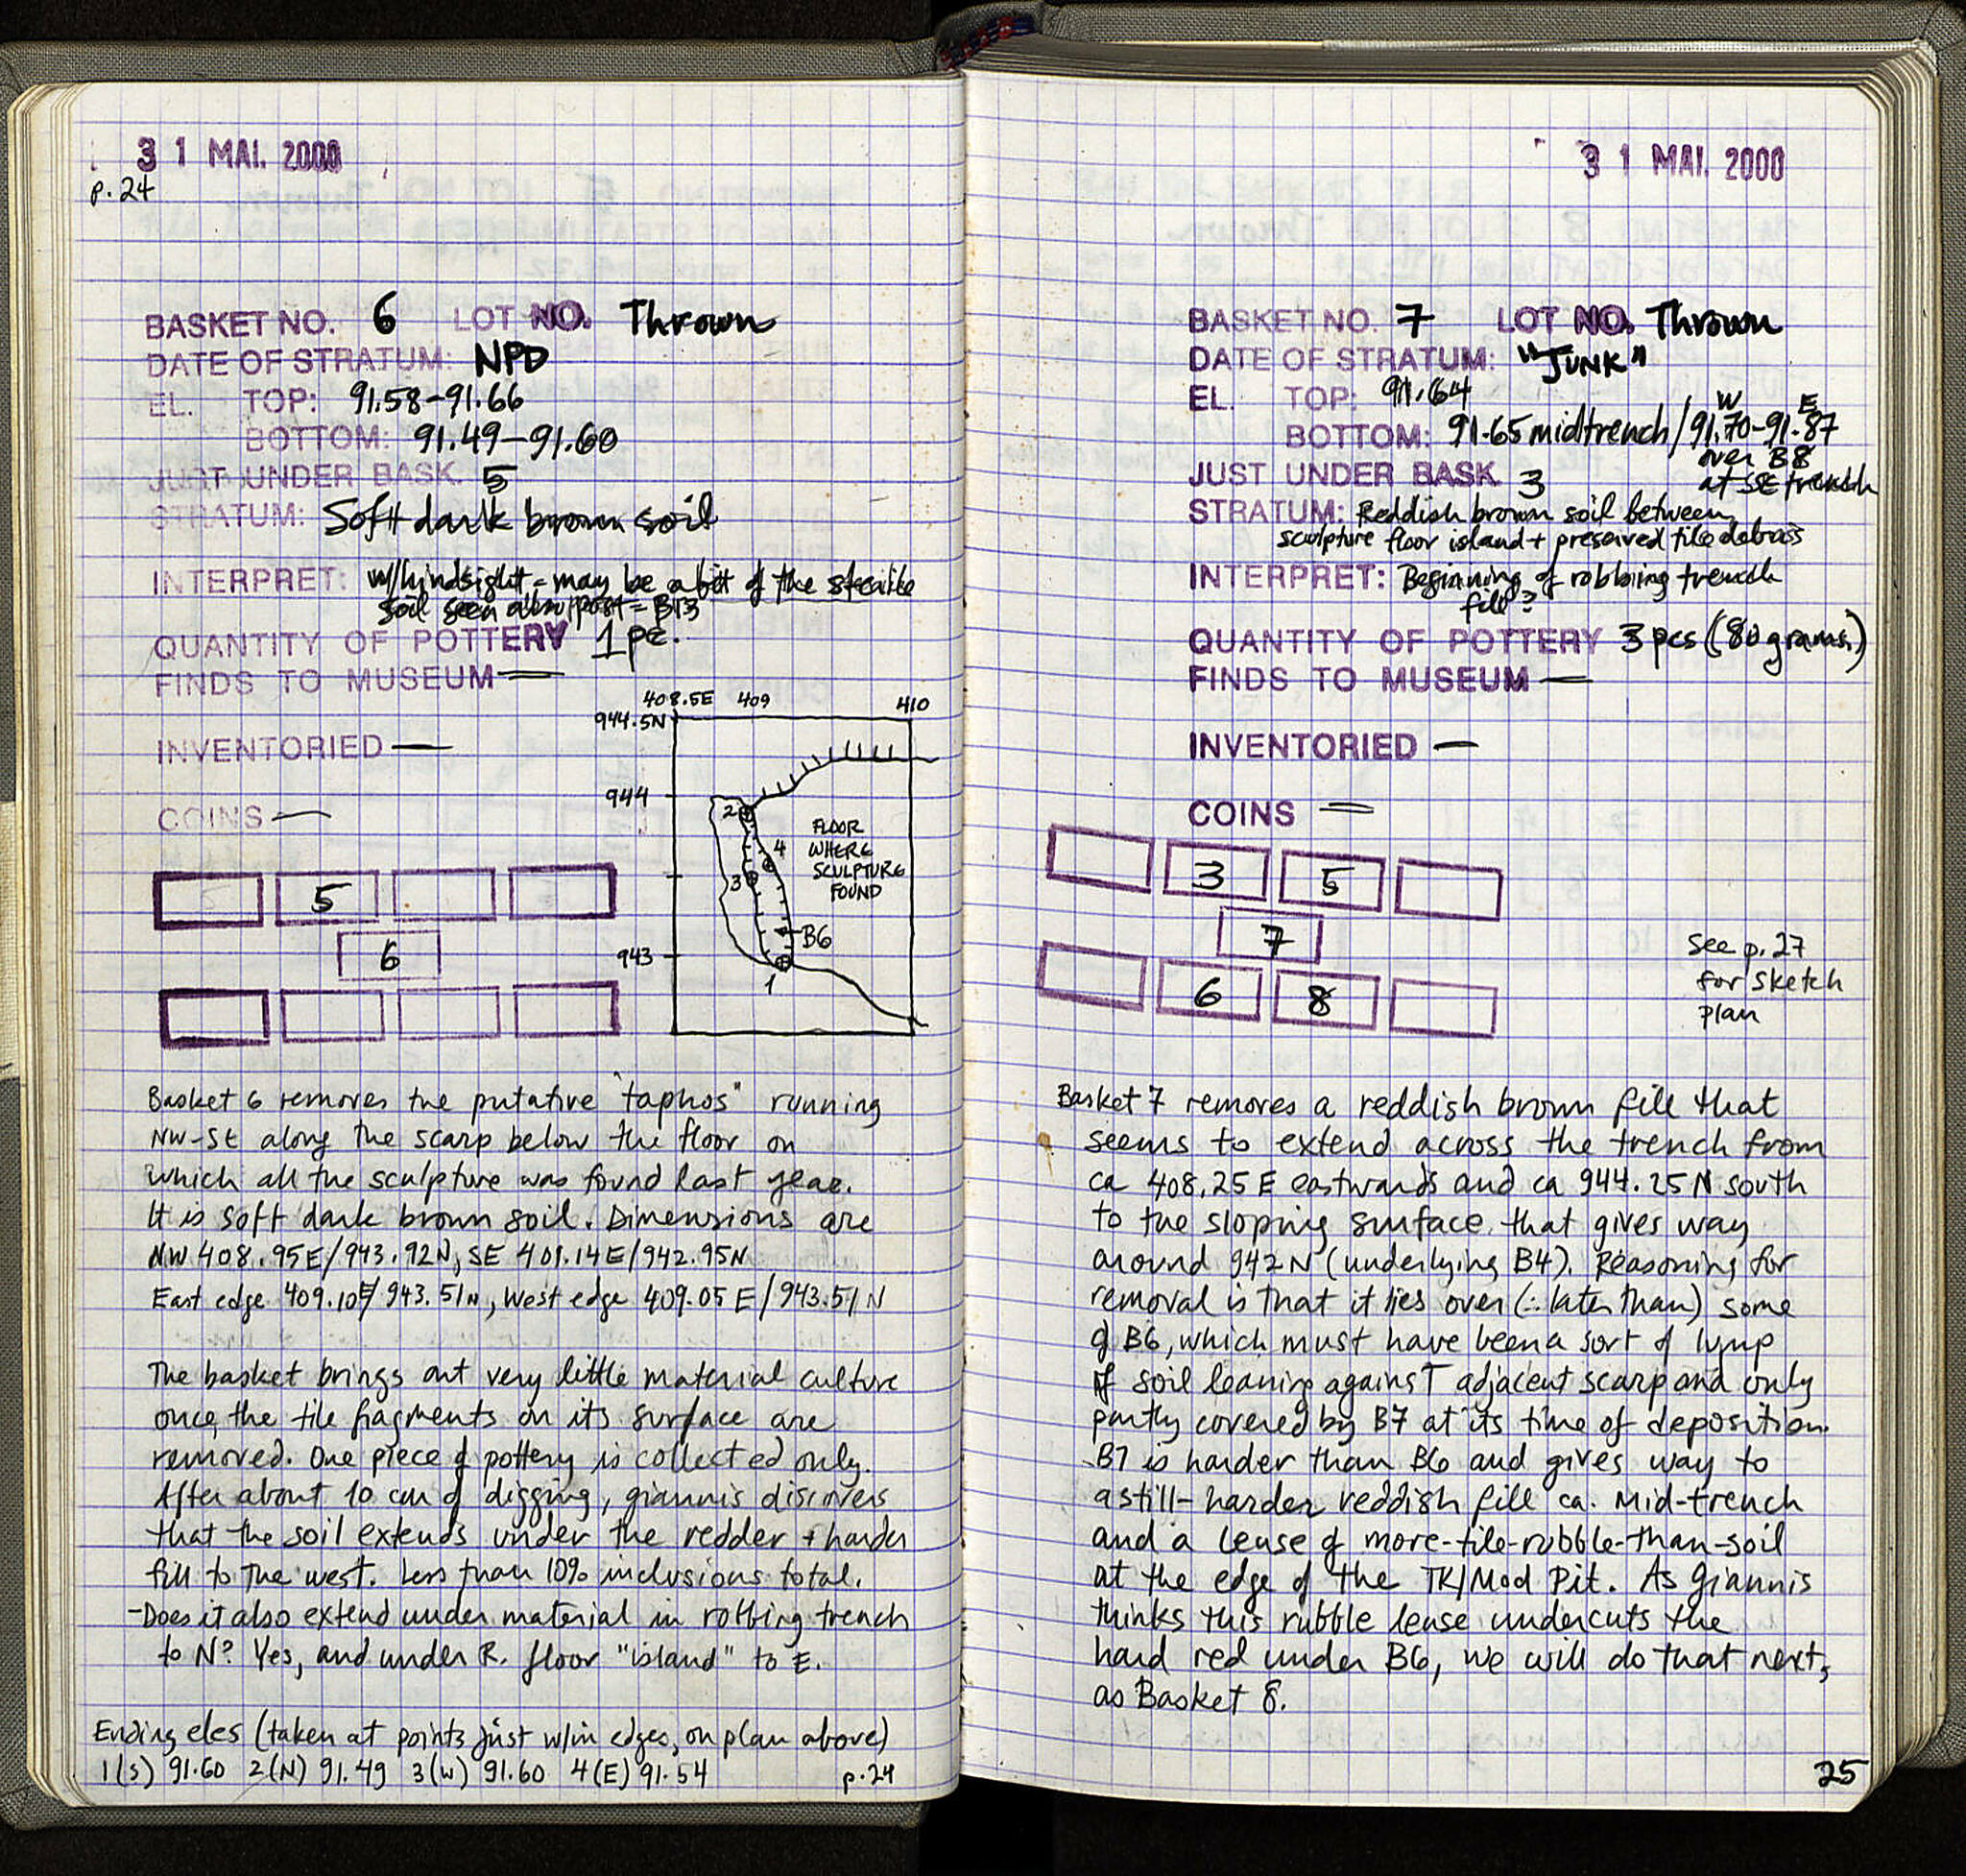 31 MAI. 2000
p. 24
BASKET NO. 6 LOT NO. Thrown
DATE OF STRATUM: NPD
EL. TOP: 91.58-91.66
BOTTOM: 91.49-91.60
JUST UNDER BASK. 5
STRATUM: Soft dark brown soil
INTERPRET: w/hindsight - may be a bit of the sterile
soil seen also = B13
QUANTITY OF POTTERY 1 pc.
FINDS TO MUSEUM —
INVENTORIED —
COINS —
408.5E 409 410
944.5N
944
943
2
4
3
B6
1
FLOOR
WHERE
SCULPTURE
FOUND
5
6
Basket 6 removes the putative "taphos" running
NW-SE along the scarp below the floor on
which all the sculpture was found last year.
It is soft dark brown soil. Dimensions are
NW 408.95E/943.92N, SE 409.14E/942.95N
East edge 409.10E/943.51N, West edge 409.05E/943.51N
The basket brings out very little material culture
once the tile fragments on its surface are
removed. One piece of pottery is collected only.
After about 10 cm of digging, Giannis discovers
that the soil extends under the redder + harder
fill to the west. Less than 10% inclusions total.
-Does it also extend under material in robbing trench
to N? Yes, and under R. floor "island" to E.
Ending eles (taken at points just w/in edges, on plan above)
1(S) 91.60 2(N) 91.49 3(W) 91.60 4(E) 91.54
p. 24
31 MAI. 2000
BASKET NO. 7 LOT NO. Thrown
DATE OF STRATUM: "JUNK"
EL. TOP: 91.64
W E
BOTTOM: 91.65 midtrench/91.70-91.87
over B8
at SE trench
JUST UNDER BASK. 3
STRATUM: Reddish brown soil between
sculpture floor island + preserved tile debris
INTERPRET: Beginning of robbing trench
fill?
QUANTITY OF POTTERY 3 pcs (80 grams.)
FINDS TO MUSEUM —
INVENTORIED —
COINS —
3 5
7
6 8
see p. 27
for sketch
plan
Basket 7 removes a reddish brown fill that
seems to extend across the trench from
ca 408.25E eastwards and ca 944.25N south
to the sloping surface that gives way
around 942N (underlying B4). Reasoning for
removal is that it lies over (∴ later than) some
of B6, which must have been a sort of lump
of soil leaning against adjacent scarp and only
partly covered by B7 at its time of deposition.
B7 is harder than B6 and gives way to
a still-harder reddish fill ca. mid-trench
and a lense of more-tile-rubble-than-soil
at the edge of the TK/Mod Pit. As Giannis
thinks this rubble lense undercuts the
hard red under B6, we will do that next,
as Basket 8.
25